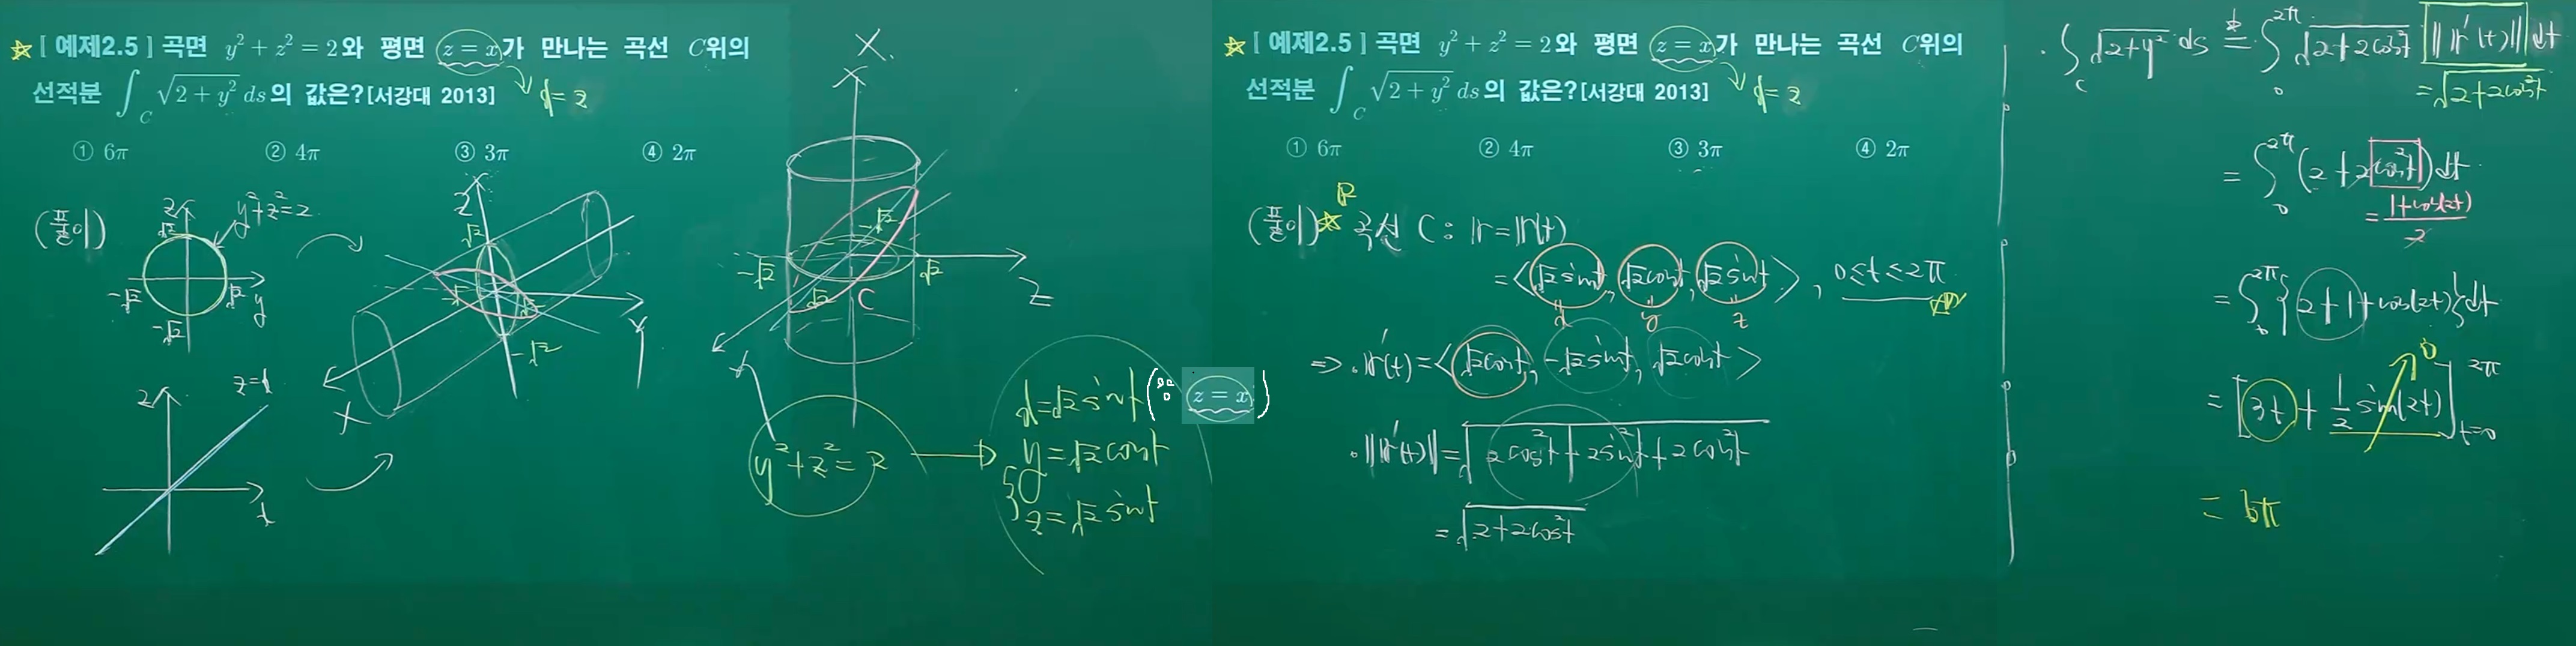 ☆ [ 예제2.5 ] 곡면 y² + z² = 2와 평면 z = x가 만나는 곡선 C위의
선적분 ∫_C √(2 + y²) ds의 값은? [서강대 2013]
x = z
① 6π ② 4π ③ 3π ④ 2π
(풀이)
z
y² + z² = 2
√2
-√2
√2
y
-√2
z = x
z
x
Z
√2
-√2
√2
-√2
X
Y
X
-√2
-√2
√2
√2
C
Z
Y
y² + z² = 2
x = √2 sin t (∵ z = x)
y = √2 cos t
z = √2 sin t
☆ [ 예제2.5 ] 곡면 y² + z² = 2와 평면 z = x가 만나는 곡선 C위의
선적분 ∫_C √(2 + y²) ds의 값은? [서강대 2013]
x = z
① 6π ② 4π ③ 3π ④ 2π
(풀이) ☆ 곡선 C : r = r(t)
= < √2 sin t, √2 cos t, √2 sin t >, 0 ≤ t ≤ 2π
x y z
⇒ r'(t) = < √2 cos t, -√2 sin t, √2 cos t >
· ||r'(t)|| = √(2cos²t + 2sin²t + 2cos²t)
= √(2 + 2cos²t)
· ∫_C √(2 + y²) ds = ∫_0^{2π} √(2 + 2cos²t) ||r'(t)|| dt
= √(2 + 2cos²t)
= ∫_0^{2π} (2 + 2cos²t) dt
= (1 + cos(2t))/2
= ∫_0^{2π} {2 + 1 + cos(2t)} dt
= [3t + 1/2 sin(2t)]_{t=0}^{2π}
0
= 6π